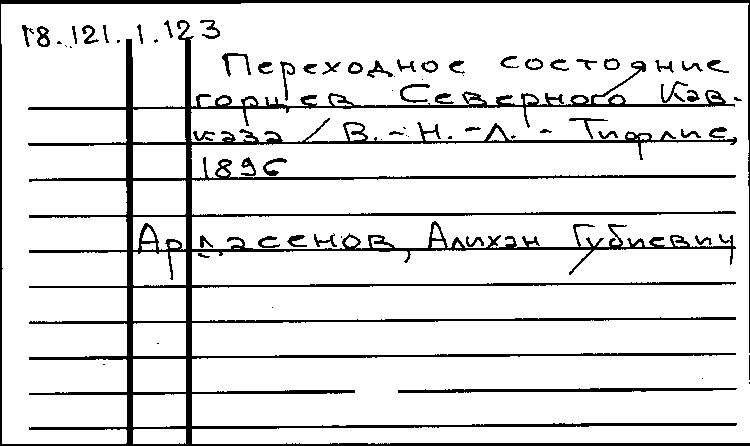 18.121.1.123
Переходное состояние
горцев Северного Кав-
каза / В.-Н.-Л. - Тифлис,
1896
Ардасенов, Алихан Губиевич